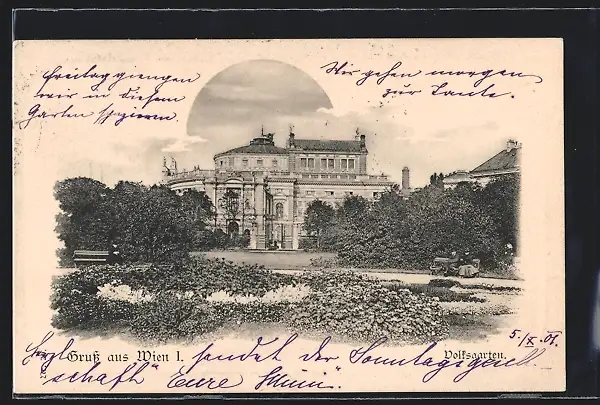 Freitag giengen
wir in diesem
Garten spazieren
Wir gehen morgen
zur Tante.
Gruß aus Wien I.
Volksgarten.
5./X. 01.
herzl. sendet der Sonntagsgesell-
schaft" Eure